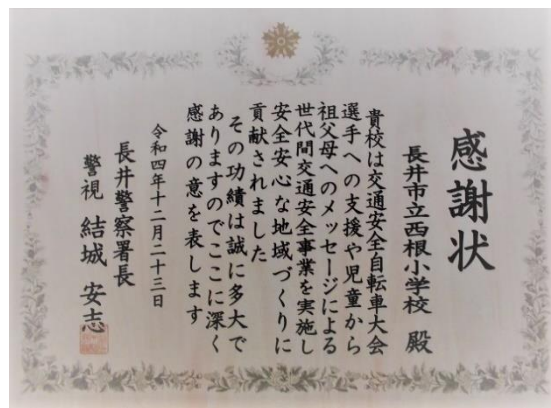 感謝状
長井市立西根小学校 殿
貴校は交通安全自転車大会
選手への支援や児童から
祖父母へのメッセージによる
世代間交通安全事業を実施し
安全安心な地域づくりに
貢献されました
その功績は誠に多大で
ありますのでここに深く
感謝の意を表します
令和四年十二月二十三日
長井警察署長
警視 結城 安志